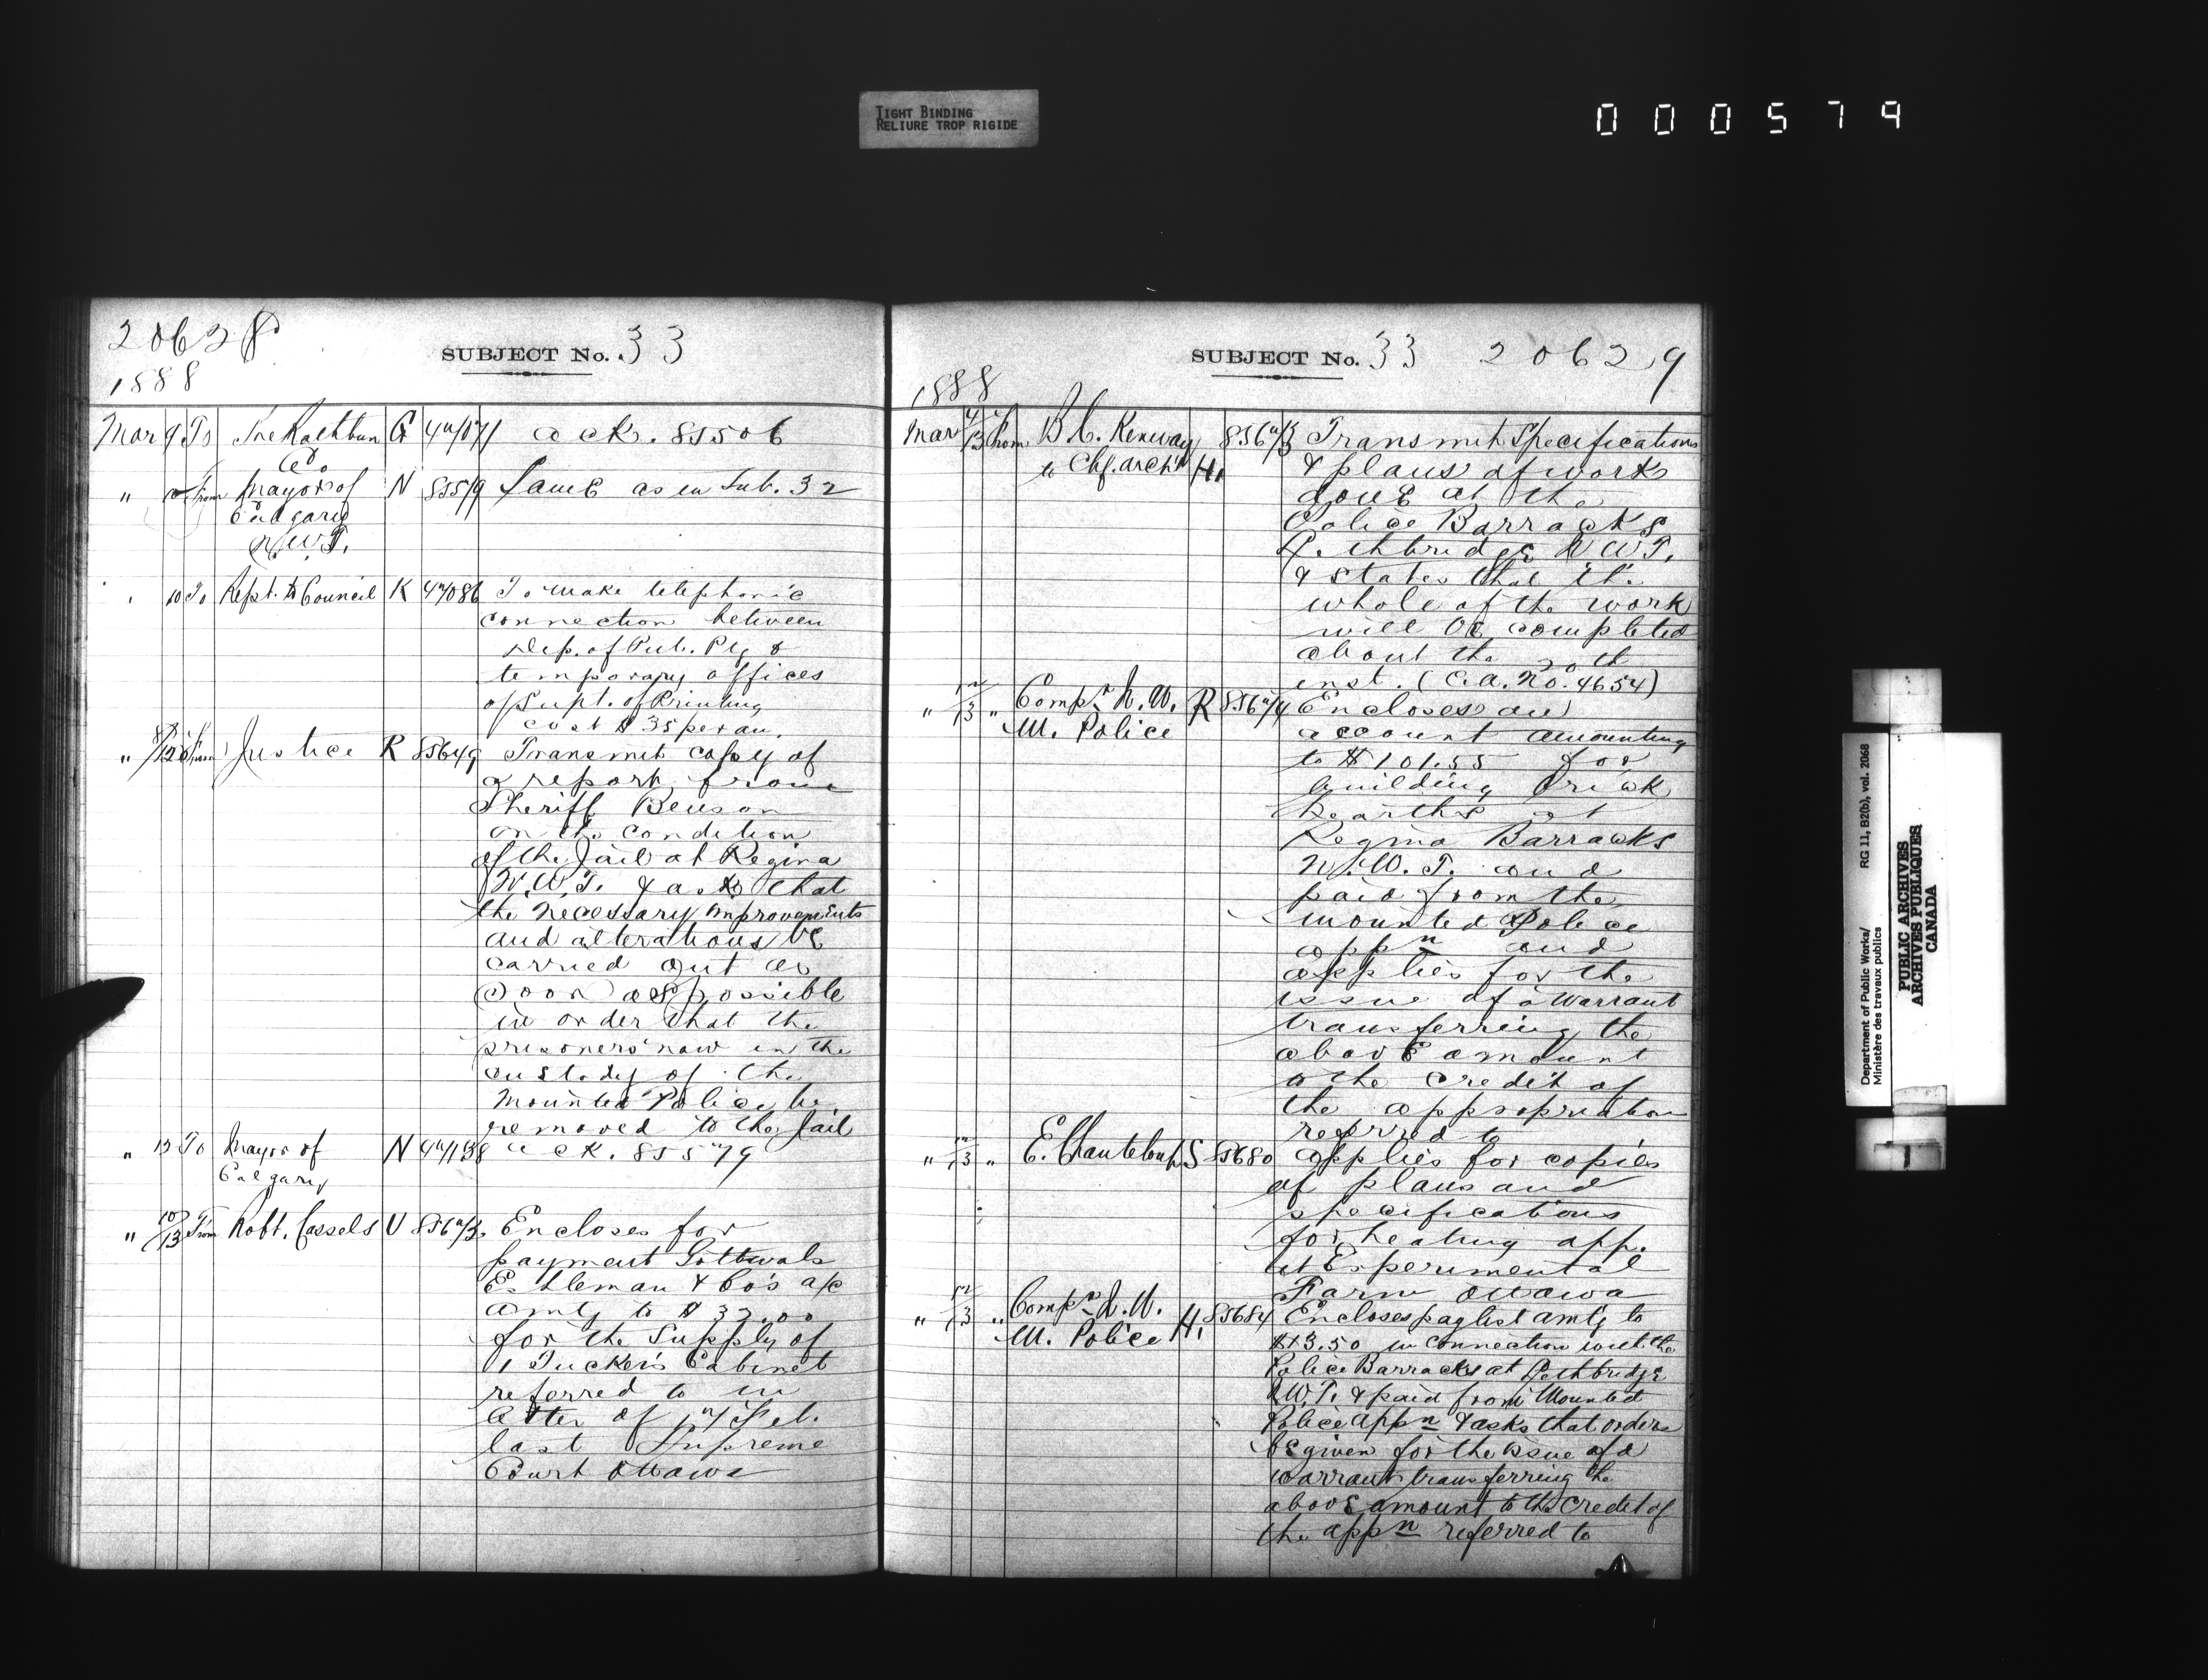 TIGHT BINDING
RELIURE TROP RIGIDE
000579
20628
SUBJECT No. 33
1888
Mar 9 To The Rathbun G 47071 ack. 85506
Co.
" From Mayor of N 85579 Same as in Sub. 32
Calgary
N.W.T.
10 To Rept. to Council K 47086 To make telephonic
connection between
Dep. of Pub. Ptg &
temporary offices
of Supt. of Printing
cost $35 per an.
" 8/12 From Justice R 85649 Transmit copy of
a report from
Sheriff Benson
on the condition
of the Jail at Regina
N.W.T. & ask that
the necessary improvements
and alterations be
carried out as
soon as possible
in order that the
prisoners now in the
custody of the
Mounted Police be
removed to the Jail
" 13 To Mayor of N 47138 ack. 85579
Calgary
" 10/13 From Robt. Cassels U 8567 Encloses for
payment
& Co's a/c
amtg to $32.00
for the supply of
1 Tucker's Cabinet
referred to in
letter of 17 Feb.
last Supreme
Court Ottawa
SUBJECT No. 33 20629
1888
Mar 13 From B. C. Kenway 85673 Transmit Specifications
to Chf. arch't H. & plans of work
done at the
Police Barracks
Lethbridge N.W.T.
& states that the
whole of the work
will be completed
about the 20th
inst. (C.A. No. 4654)
" 12/13 " Compr. N.W. R 85674 Encloses an
M. Police account amounting
to $101.55 for
building brick
hearths at
Regina Barracks
N.W.T. and
paid from the
mounted Police
appn and
applies for the
issue of a warrant
transferring the
above amount
to the credit of
the appropriation
referred to
" 12/13 " E. Chanteloup S 85680 applies for copies
of plans and
specifications
for heating app.
at Experimental
Farm Ottawa
" 12/13 " Compr. N.W. H. 85684 Encloses paylist amtg to
M. Police $13.50 in connection with the
Police Barracks at Lethbridge
N.W.T. & paid from Mounted
Police appn & asks that orders
be given for the issue of a
warrant transferring the
above amount to the credit of
the appn referred to
Department of Public Works/ RG 11, B2(b), vol. 2068
Ministère des travaux publics
PUBLIC ARCHIVES
ARCHIVES PUBLIQUES
CANADA